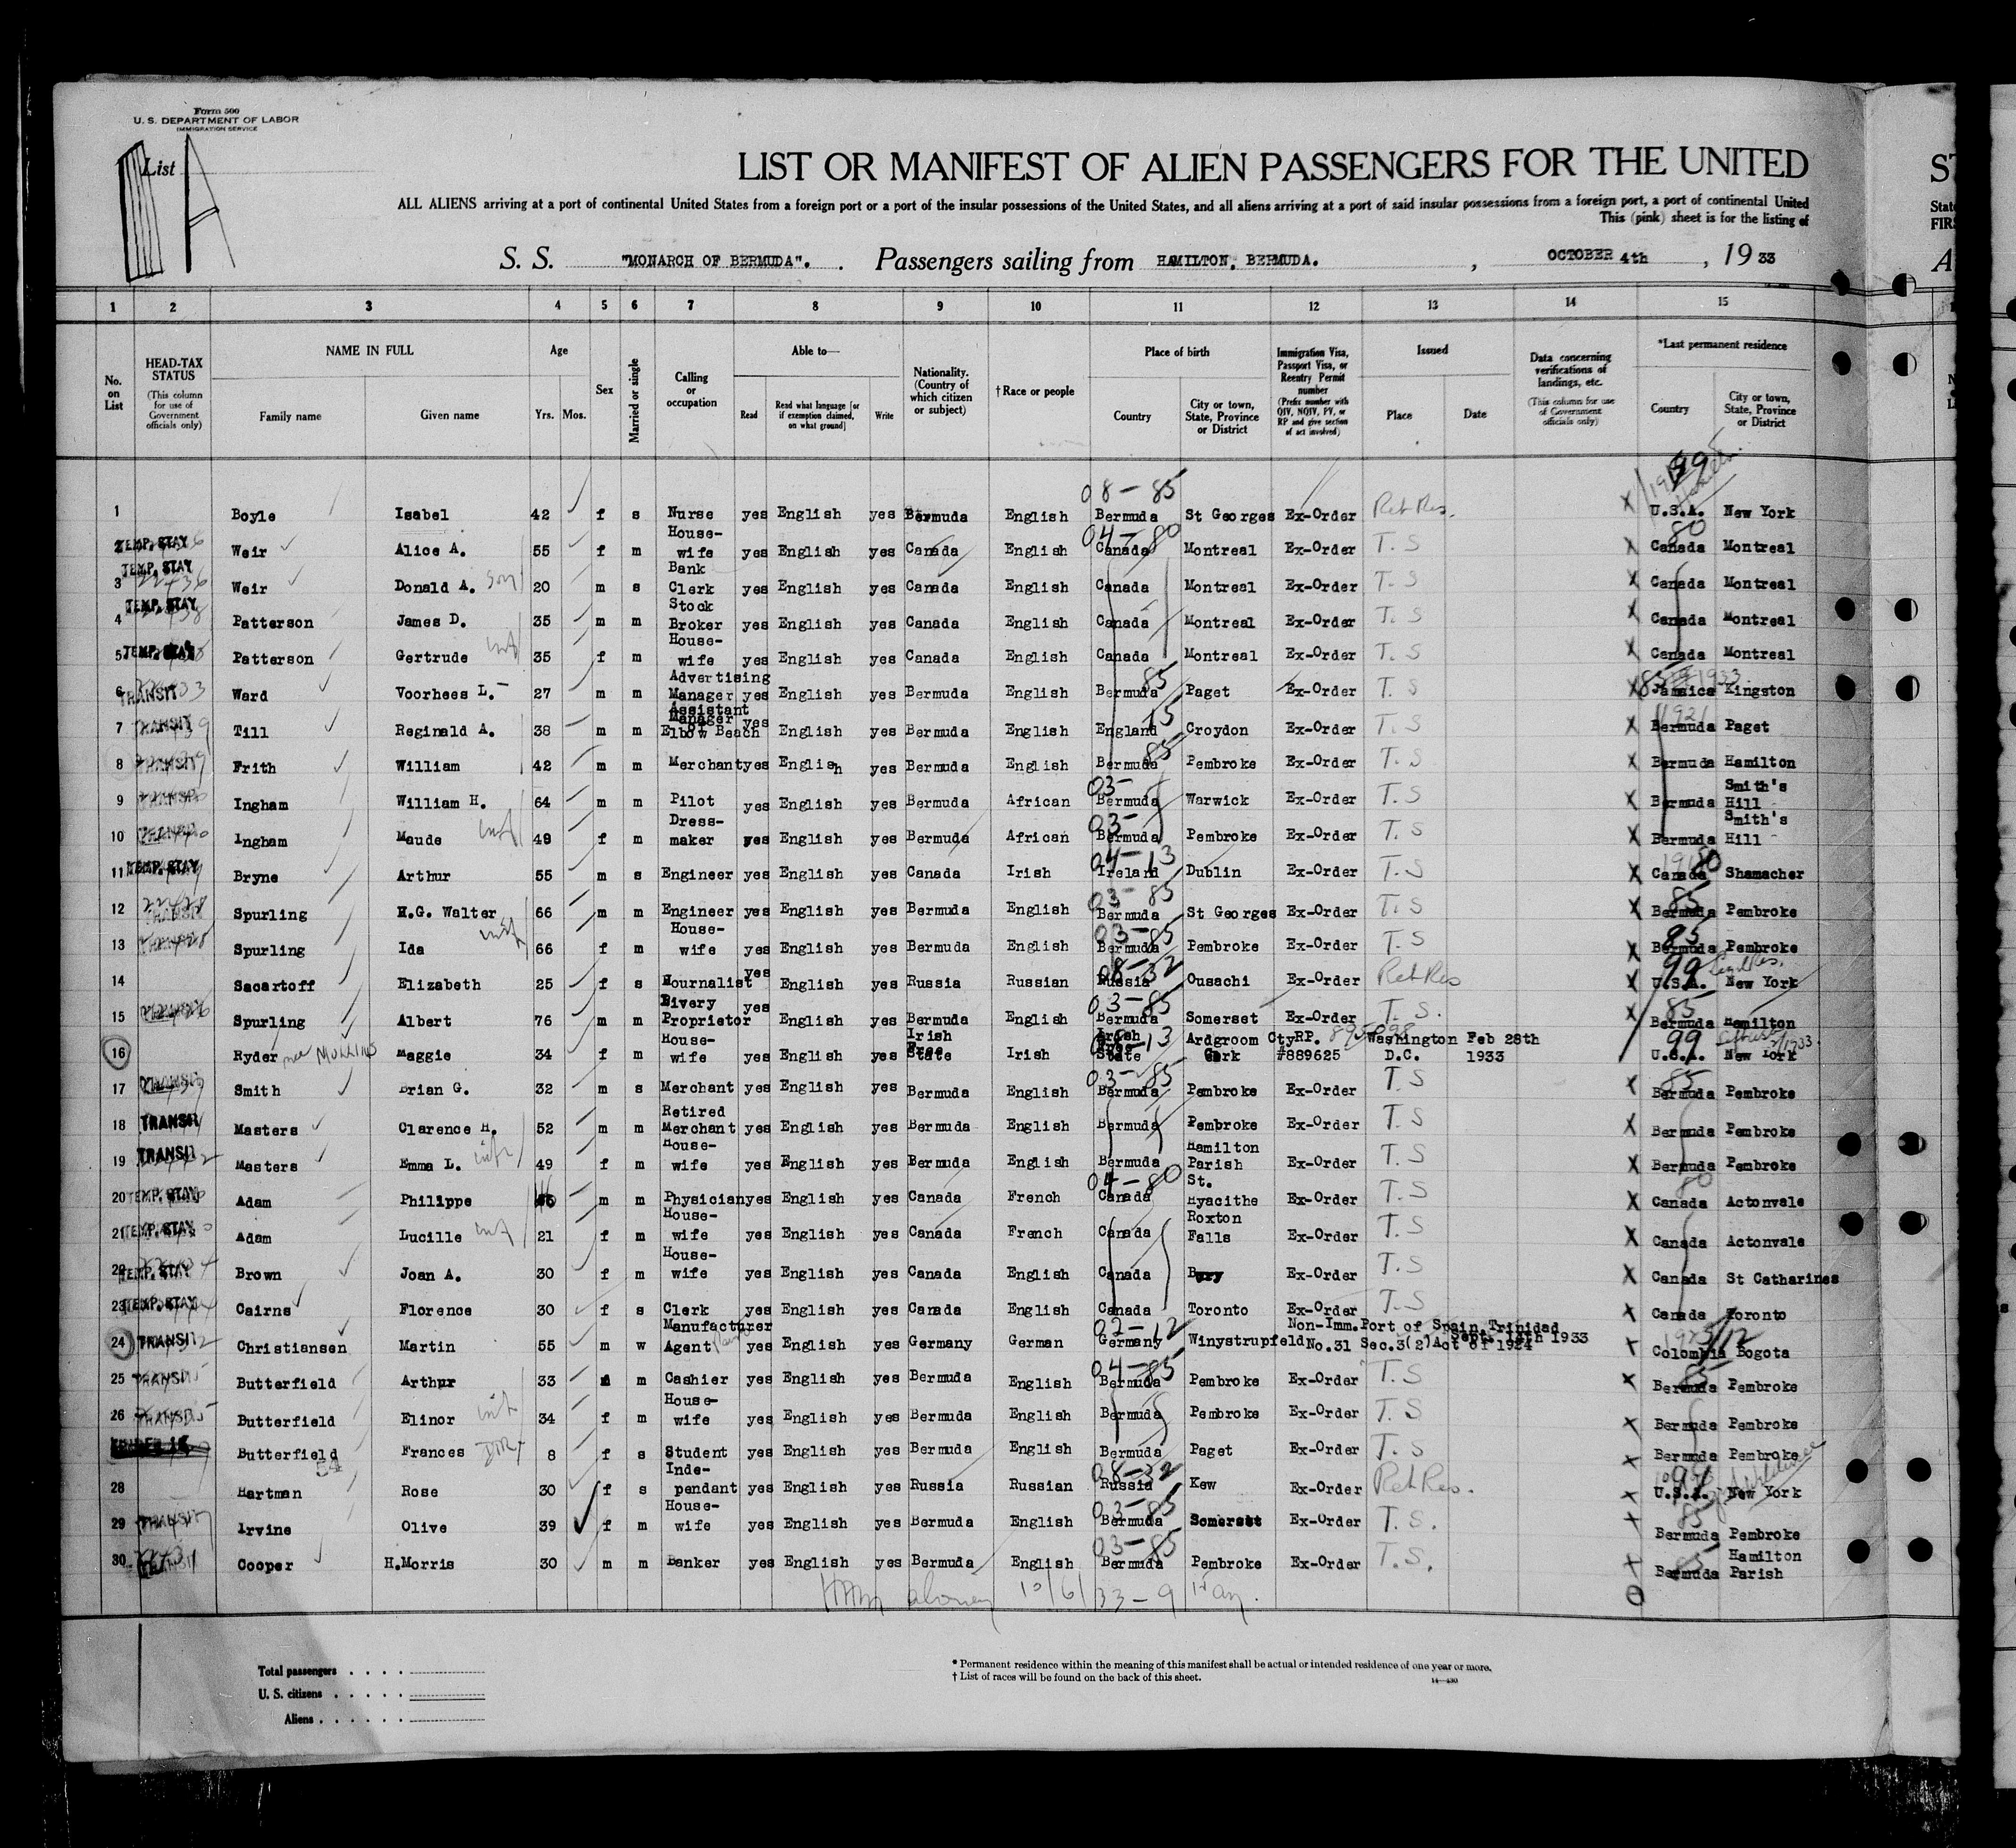 Form 500
U. S. DEPARTMENT OF LABOR
IMMIGRATION SERVICE
List
LIST OR MANIFEST OF ALIEN PASSENGERS FOR THE UNITED
ALL ALIENS arriving at a port of continental United States from a foreign port or a port of the insular possessions of the United States, and all aliens arriving at a port of said insular possessions from a foreign port, a port of continental United
This (pink) sheet is for the listing of
S. S. "MONARCH OF BERMUDA". Passengers sailing from HAMILTON, BERMUDA. , OCTOBER 4th , 19 33
1 2 3 4 5 6 7 8 9 10 11 12 13 14 15
No. on List
HEAD-TAX STATUS (This column for use of Government officials only)
NAME IN FULL Family name Given name
Age Yrs. Mos.
Sex
Married or single
Calling or occupation
Able to— Read Read what language [or if exemption claimed, on what ground] Write
Nationality. (Country of which citizen or subject)
†Race or people
Place of birth Country City or town, State, Province or District
Immigration Visa, Passport Visa, or Reentry Permit number (Prefix number with QIV, NQIV, PV, or RP and give section of act involved)
Issued Place Date
Data concerning verifications of landings, etc. (This column for use of Government officials only)
*Last permanent residence Country City or town, State, Province or District
1 Boyle Isabel 42 f s Nurse yes English yes Bermuda English Bermuda St Georges Ex-Order Ret Res. U.S.A. New York
2 TEMP. STAY Weir Alice A. 55 f m House-wife yes English yes Canada English Canada Montreal Ex-Order T.S Canada Montreal
3 TEMP. STAY Weir Donald A. son 20 m s Bank Clerk yes English yes Canada English Canada Montreal Ex-Order T.S Canada Montreal
4 TEMP. STAY Patterson James D. 35 m m Stock Broker yes English yes Canada English Canada Montreal Ex-Order T.S Canada Montreal
5 TEMP. STAY Patterson Gertrude 35 f m House-wife yes English yes Canada English Canada Montreal Ex-Order T.S Canada Montreal
6 TRANSIT Ward Voorhees L. 27 m m Advertising Manager yes English yes Bermuda English Bermuda Paget Ex-Order T.S Jamaica Kingston
7 TRANSIT Till Reginald A. 38 m m Assistant Manager Elbow Beach yes English yes Bermuda English England Croydon Ex-Order T.S Bermuda Paget
8 TRANSIT Frith William 42 m m Merchant yes English yes Bermuda English Bermuda Pembroke Ex-Order T.S Bermuda Hamilton
9 Ingham William H. 64 m m Pilot yes English yes Bermuda African Bermuda Warwick Ex-Order T.S Bermuda Smith's Hill
10 Ingham Maude 49 f m Dress-maker yes English yes Bermuda African Bermuda Pembroke Ex-Order T.S Bermuda Smith's Hill
11 TEMP. STAY Bryne Arthur 55 m s Engineer yes English yes Canada Irish Ireland Dublin Ex-Order T.S Canada Shamacher
12 Spurling H.G. Walter 66 m m Engineer yes English yes Bermuda English Bermuda St Georges Ex-Order T.S Bermuda Pembroke
13 Spurling Ida 66 f m House-wife yes English yes Bermuda English Bermuda Pembroke Ex-Order T.S Bermuda Pembroke
14 Sacartoff Elizabeth 25 f s Hournalist yes English yes Russia Russian Russia Ousachi Ex-Order Ret Res U.S.A. New York
15 Spurling Albert 76 m m Livery Proprietor yes English yes Bermuda English Bermuda Somerset Ex-Order T.S. Bermuda Hamilton
16 Ryder nee Mullins Maggie 34 f m House-wife yes English yes Irish Free State Irish Irish Free State Ardgroom Cty Cork RP. #889625 Washington D.C. Feb 28th 1933 U.S.A. New York
17 Smith Brian G. 32 m s Merchant yes English yes Bermuda English Bermuda Pembroke Ex-Order T.S Bermuda Pembroke
18 TRANSIT Masters Clarence H. 52 m m Retired Merchant yes English yes Bermuda English Bermuda Pembroke Ex-Order T.S Bermuda Pembroke
19 TRANSIT Masters Emma L. 49 f m House-wife yes English yes Bermuda English Bermuda Hamilton Parish Ex-Order T.S Bermuda Pembroke
20 TEMP. STAY Adam Philippe m m Physician yes English yes Canada French Canada St. Hyacithe Ex-Order T.S Canada Actonvale
21 TEMP. STAY Adam Lucille 21 f m House-wife yes English yes Canada French Canada Roxton Falls Ex-Order T.S Canada Actonvale
22 TEMP. STAY Brown Joan A. 30 f m House-wife yes English yes Canada English Canada Bury Ex-Order T.S Canada St Catharines
23 TEMP. STAY Cairns Florence 30 f s Clerk yes English yes Canada English Canada Toronto Ex-Order T.S Canada Toronto
24 TRANSIT Christiansen Martin 55 m w Manufacturer Agent yes English yes Germany German Germany Winystrupfeld Non-Imm. No.31 Sec.3(2)Act of 1924 Port of Spain Trinidad Sept. 14th 1933 Colombia Bogota
25 TRANSIT Butterfield Arthur 33 m Cashier yes English yes Bermuda English Bermuda Pembroke Ex-Order T.S Bermuda Pembroke
26 TRANSIT Butterfield Elinor 34 f m House-wife yes English yes Bermuda English Bermuda Pembroke Ex-Order T.S Bermuda Pembroke
Butterfield Frances 8 f s Student yes English yes Bermuda English Bermuda Paget Ex-Order T.S Bermuda Pembroke
28 Hartman Rose 30 f s Inde-pendant yes English yes Russia Russian Russia Kew Ex-Order Ret Res. U.S.A. New York
29 TRANSIT Irvine Olive 39 f m House-wife yes English yes Bermuda English Bermuda Somerset Ex-Order T.S. Bermuda Pembroke
30 Cooper H.Morris 30 m m Banker yes English yes Bermuda English Bermuda Pembroke Ex-Order T.S. Bermuda Hamilton Parish
10/6/33 - 9
Total passengers
U. S. citizens
Aliens
* Permanent residence within the meaning of this manifest shall be actual or intended residence of one year or more.
† List of races will be found on the back of this sheet.
14—430